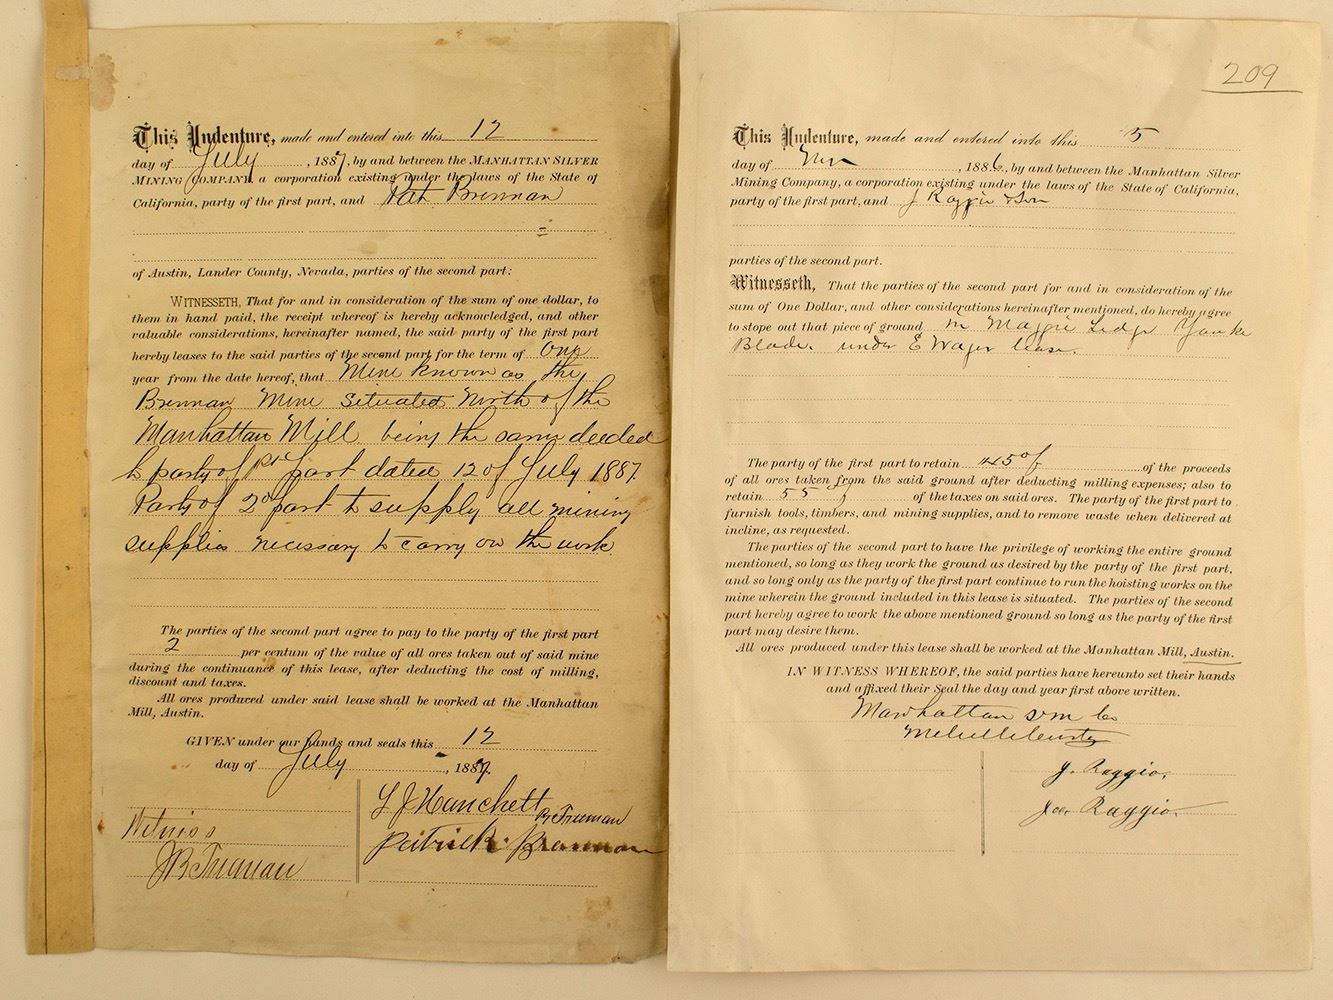 This Indenture, made and entered into this 12
day of July, 1887, by and between the MANHATTAN SILVER
MINING COMPANY, a corporation existing under the laws of the State of
California, party of the first part, and Pat Brennan
of Austin, Lander County, Nevada, parties of the second part:
WITNESSETH, That for and in consideration of the sum of one dollar, to
them in hand paid, the receipt whereof is hereby acknowledged, and other
valuable considerations, hereinafter named, the said party of the first part
hereby leases to the said parties of the second part, for the term of One
year from the date hereof, that Mine known as the
Brennan Mine situated North of the
Manhattan Mill being the same deeded
to party of 1st part dated 12 of July 1887.
Party of 2d part to supply all mining
supplies necessary to carry on the work
The parties of the second part agree to pay to the party of the first part
2 per centum of the value of all ores taken out of said mine
during the continuance of this lease, after deducting the cost of milling,
discount and taxes.
All ores produced under said lease shall be worked at the Manhattan
Mill, Austin.
GIVEN under our hands and seals this 12
day of July, 1887.
L J Hanchett
By Freeman
Patrick Brannan
Witness
JB Freeman
209
This Indenture, made and entered into this 5
day of, 1886, by and between the Manhattan Silver
Mining Company, a corporation existing under the laws of the State of California,
party of the first part, and J Raggio & Son
parties of the second part.
Witnesseth, That the parties of the second part for and in consideration of the
sum of One Dollar, and other considerations hereinafter mentioned, do hereby agree
to stope out that piece of ground in Magpie Ledge Yankee
Blade. under E Wager lease.
The party of the first part to retain 45% of the proceeds
of all ores taken from the said ground after deducting milling expenses; also to
retain 55% of the taxes on said ores. The party of the first part to
furnish tools, timbers, and mining supplies, and to remove waste when delivered at
incline, as requested.
The parties of the second part to have the privilege of working the entire ground
mentioned, so long as they work the ground as desired by the party of the first part,
and so long only as the party of the first part continue to run the hoisting works on the
mine wherein the ground included in this lease is situated. The parties of the second
part hereby agree to work the above mentioned ground so long as the party of the first
part may desire them.
All ores produced under this lease shall be worked at the Manhattan Mill, Austin.
IN WITNESS WHEREOF, the said parties have hereunto set their hands
and affixed their Seal the day and year first above written.
Manhattan S M Co
J. Raggio.
Joe Raggio.